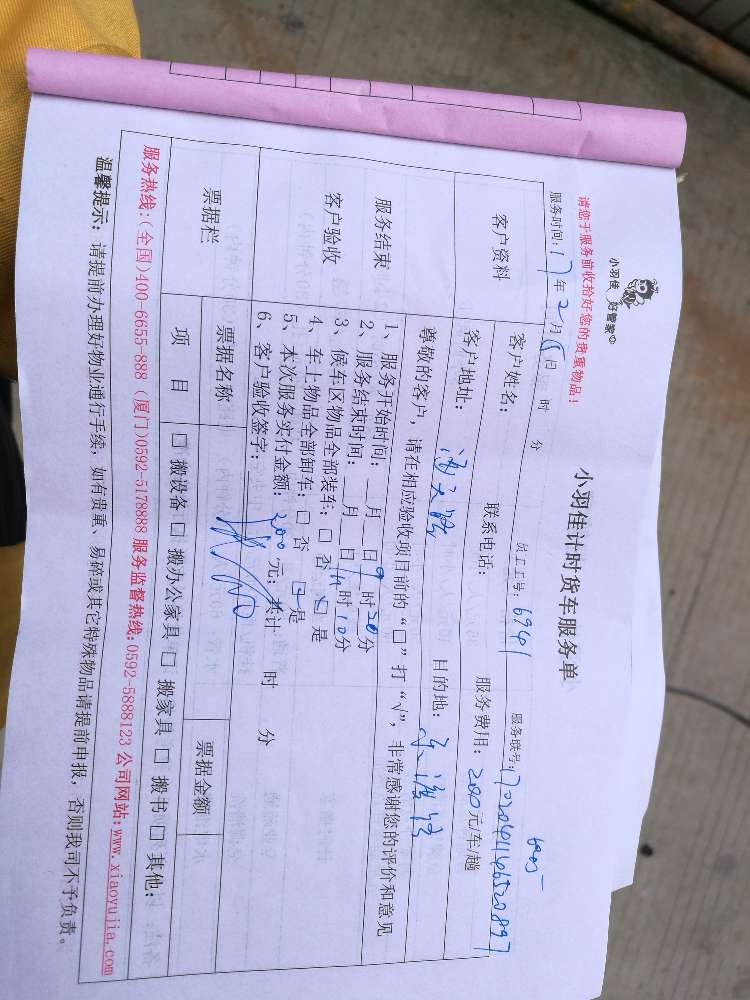 小羽佳 好管家
小羽佳计时货车服务单
请您于服务前收拾好您的贵重物品!
员工工号: 6941
服务联号:
服务时间: 17年2月5日 时 分
客户资料
客户姓名:
联系电话:
服务费用: 200元/车/趟
客户地址:
目的地:
尊敬的客户，请在相应验收项目前的“□”打“√”，非常感谢您的评价和意见
服务结束
客户验收
1、服务开始时间: 月 日9时20分
2、服务结束时间: 月 日11时10分
3、候车区物品全部装车: □ 否 ☑ 是
4、车上物品全部卸车: □ 否 ☑ 是
5、本次服务实付金额: 200元; 共计 时 分
6、客户验收签字:
票据栏
票据名称
票据金额
项 目
□ 搬设备 □ 搬办公家具 □ 搬家具 □ 搬书 □ 其他:
服务热线:(全国)400-6655-888 (厦门)0592-5178888 服务监督热线:0592-5888123 公司网站:www.xiaoyujia.com
温馨提示: 请提前办理好物业通行手续，如有贵重、易碎或其它特殊物品请提前申报，否则我司不予负责。